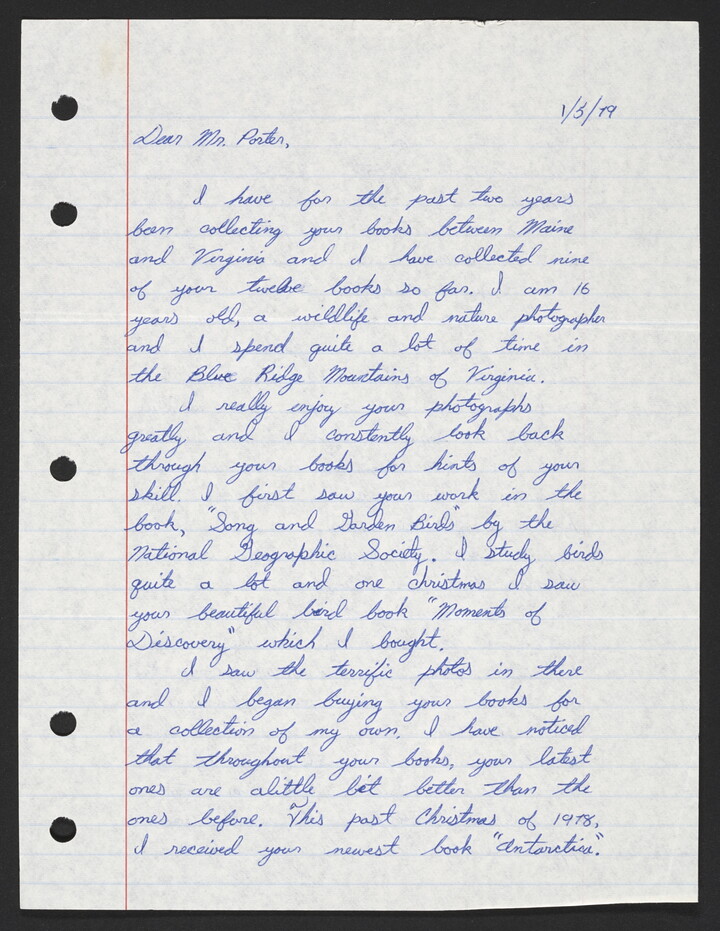 1/3/79
Dear Mr. Porter,
I have for the past two years
been collecting your books between Maine
and Virginia and I have collected nine
of your twelve books so far. I am 16
years old, a wildlife and nature photographer
and I spend quite a lot of time in
the Blue Ridge Mountains of Virginia.
I really enjoy your photographs
greatly and I constently look back
through your books for hints of your
skill. I first saw your work in the
book, "Song and Garden Birds" by the
National Geographic Society. I study birds
quite a lot and one christmas I saw
your beautiful bird book "Moments of
Discovery" which I bought.
I saw the terrific photos in there
and I began buying your books for
a collection of my own. I have noticed
that throughout your books, your latest
ones are alittle bit better than the
ones before. This past Christmas of 1978,
I received your newest book "Antarctica".